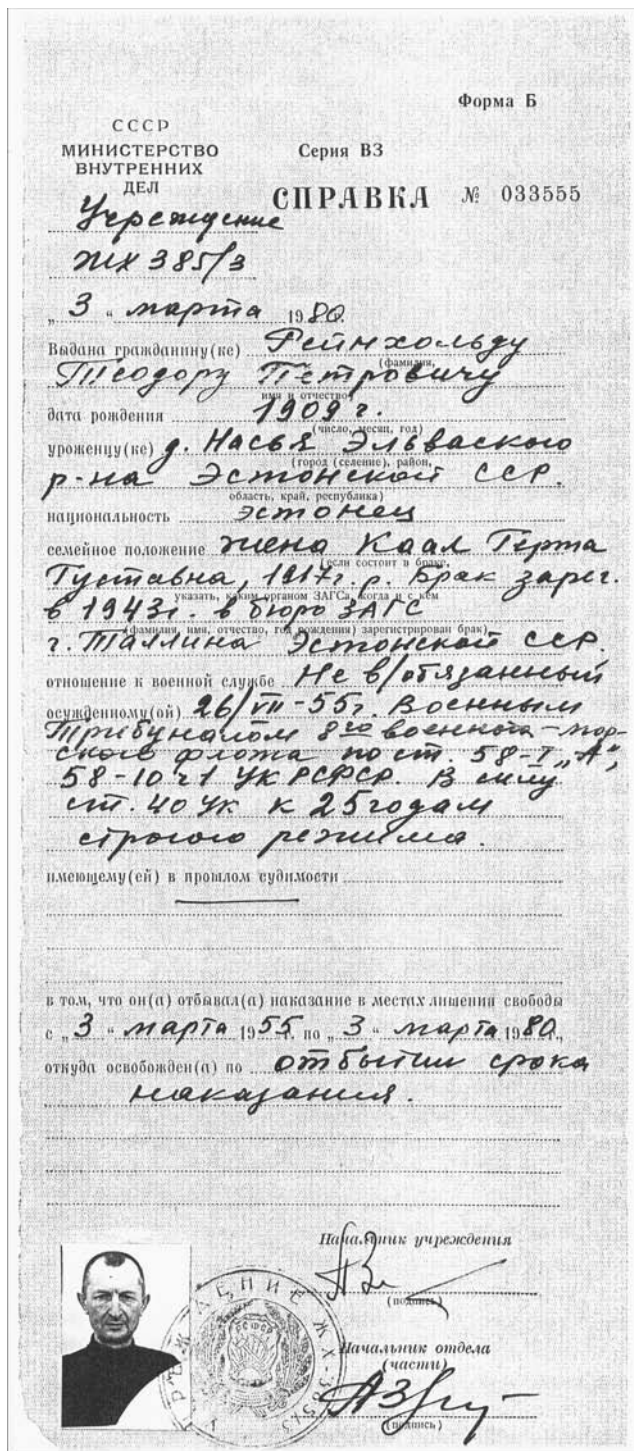 Форма Б
СССР
МИНИСТЕРСТВО
ВНУТРЕННИХ
ДЕЛ
Серия ВЗ
СПРАВКА № 033555
Учреждение
ЖХ 385/3
„ 3 “ марта 19 80
Выдана гражданину(ке) Рейнхольду
(фамилия,
Теодору Петровичу
имя и отчество)
дата рождения 1909 г.
(число, месяц, год)
уроженцу(ке) д. Насья Эльваского
(город (селение), район,
р-на Эстонской ССР.
область, край, республика)
национальность эстонец
семейное положение жена Каал Герта
(если состоит в браке,
Густавна, 1917г. р. Брак зарег.
указать, каким органом ЗАГСа, когда и с кем
в 1943г. в бюро ЗАГС
(фамилия, имя, отчество, год рождения) зарегистрирован брак)
г. Таллина Эстонской ССР.
отношение к военной службе Не в/обязанный
осужденному(ой) 26/VII-55г. Военным
трибуналом 8го военно-мор-
ского флота по ст. 58-I „А“,
58-10 ч1 УК РСФСР. В силу
ст. 40 УК к 25 годам
строгого режима.
имеющему(ей) в прошлом судимости
в том, что он(а) отбывал(а) наказание в местах лишения свободы
с „ 3 “ марта 19 55 г. по „ 3 “ марта 19 80 г.,
откуда освобожден(а) по отбытии срока
наказания.
Начальник учреждения
(подпись)
Начальник отдела
(части)
(подпись)
РСФСР
ЖХ-385